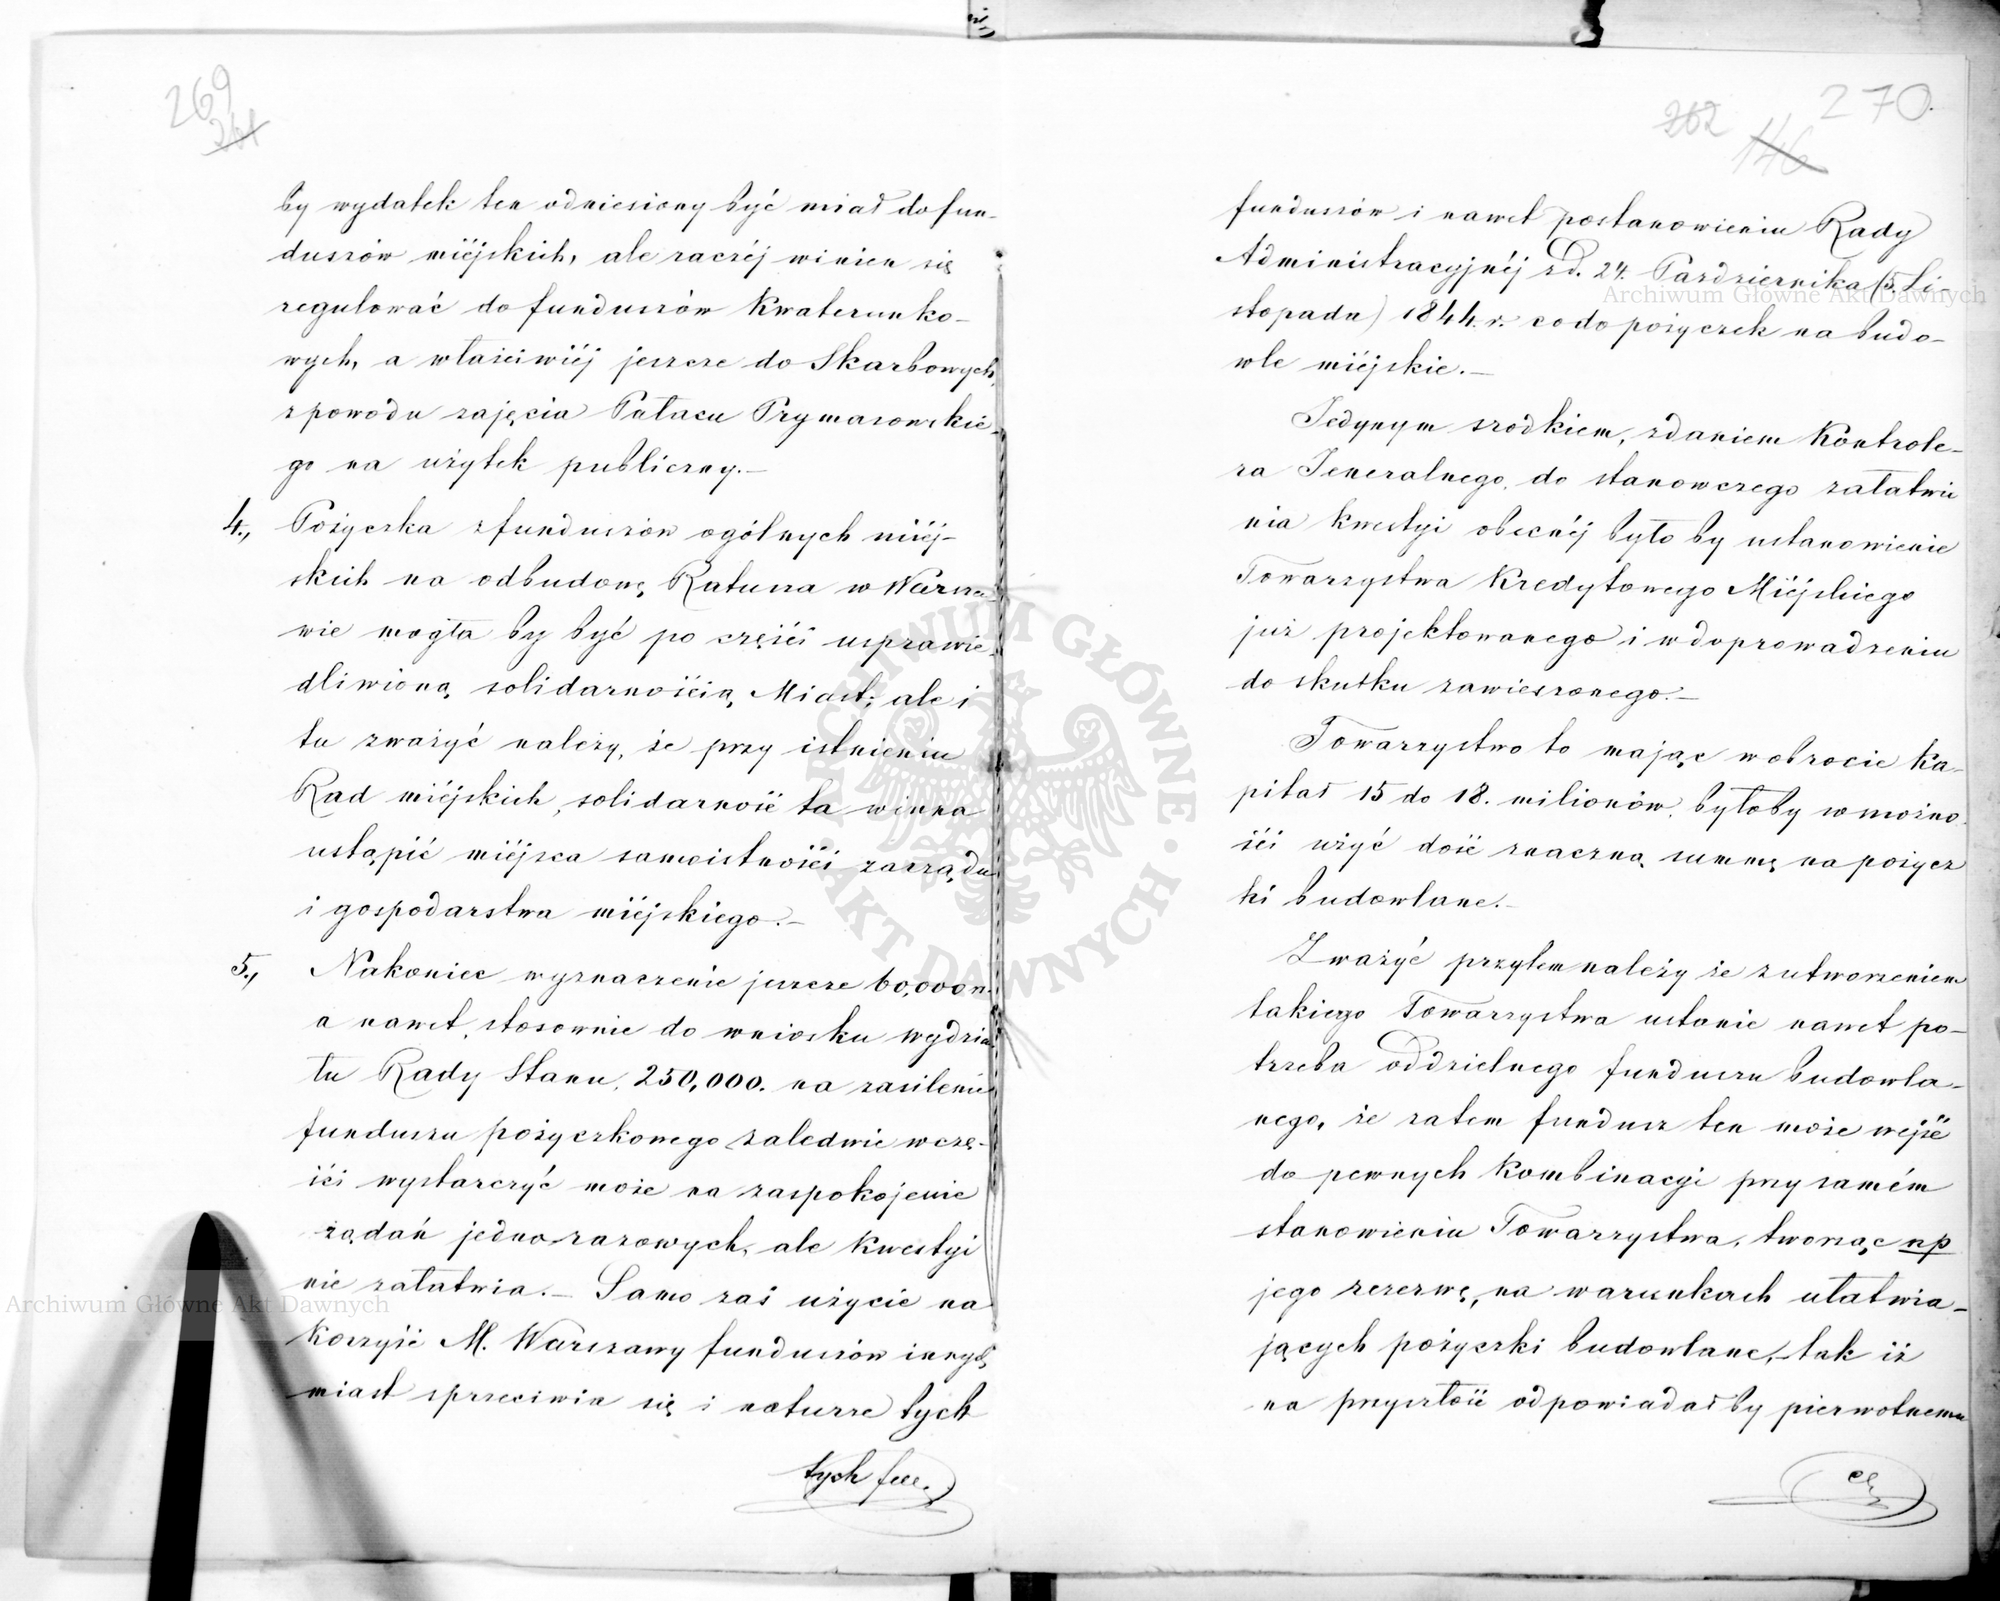 269
261
by wydatek ten odniesiony być miał do fun-
duszów miéjskich, ale raczéj winien się
regulować do funduszów Kwaterunko-
wych, a właściwiéj jeszcze do Skarbowych,
z powodu zajęcia Pałacu Prymasowskie-
go na użytek publiczny.—
4., Pożyczka z funduszów ogólnych miéj-
skich na odbudowę Ratusza w Warsza-
wie mogła by być po części usprawie-
dliwioną solidarnością Miast; ale i
tu zważyć należy, że przy istnieniu
Rad miéjskich, solidarność ta winna
ustąpić miéjsca samoistności zarządu
i gospodarstwa miéjskiego.—
5., Nakoniec wyznaczenie jeszcze 60,000 r.
a nawet, stosownie do wniosku Wydzia-
łu Rady Stanu, 250,000. na zasilenie
funduszu pożyczkowego zaledwie w czę-
ści wystarczyć może na zaspokojenie
żądań jednorazowych, ale Kwestyi
nie załatwia.— Samo zaś użycie na
Korzyść M. Warszawy funduszów innych
miast sprzeciwia się i naturze tych
tych fun.
270
262
146
funduszów i nawet postanowieniu Rady
Administracyjnéj z d. 24. Października (5. Li-
stopada) 1844. r. co do pożyczek na budo-
wle miéjskie.—
Jedynym srodkiem, zdaniem Kontrole-
ra Jeneralnego, do stanowczego załatwie
nia kwestyi obecnéj było by ustanowienie
Towarzystwa Kredytowego Miéjskiego
już projektowanego i w doprowadzeniu
do skutku zawieszonego.—
Towarzystwo to mając w obrocie Ka-
pitał 15 do 18. milionów, byłoby w możno
ści użyć dość znaczną summę na pożycz
ki budowlane.—
Zważyć przytem należy że z utworzeniem
takiego Towarzystwa ustanie nawet po-
trzeba oddzielnego funduszu budowla-
nego, że zatem fundusz ten może wejść
do pewnych Kombinacyi przy samém
stanowieniu Towarzystwa, tworząc np
jego rezerwę, na warunkach ułatwia-
jących pożyczki budowlane, tak iż
na przyszłość odpowiadał by pierwotnemu
Archiwum Główne Akt Dawnych
Archiwum Główne Akt Dawnych
ARCHIWUM GŁÓWNE · AKT DAWNYCH ·